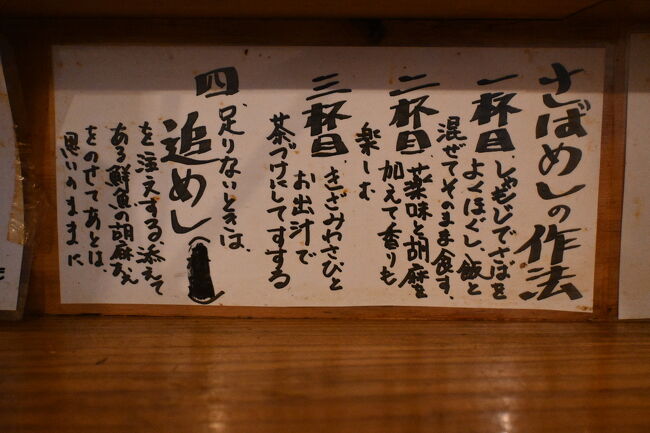 さばめしの作法
一杯目、しゃもじでさばを
よくほぐし、飯と
混ぜてそのまま食す。
二杯目、薬味と胡麻を
加えて香りも
楽しむ
三杯目、きざみわさびと
お出汁で
茶づけにしてすする
四、足りないときは、
追めし
を注文する、添えて
ある鮮魚の胡麻あえ
をのせてあとは、
思いのままに